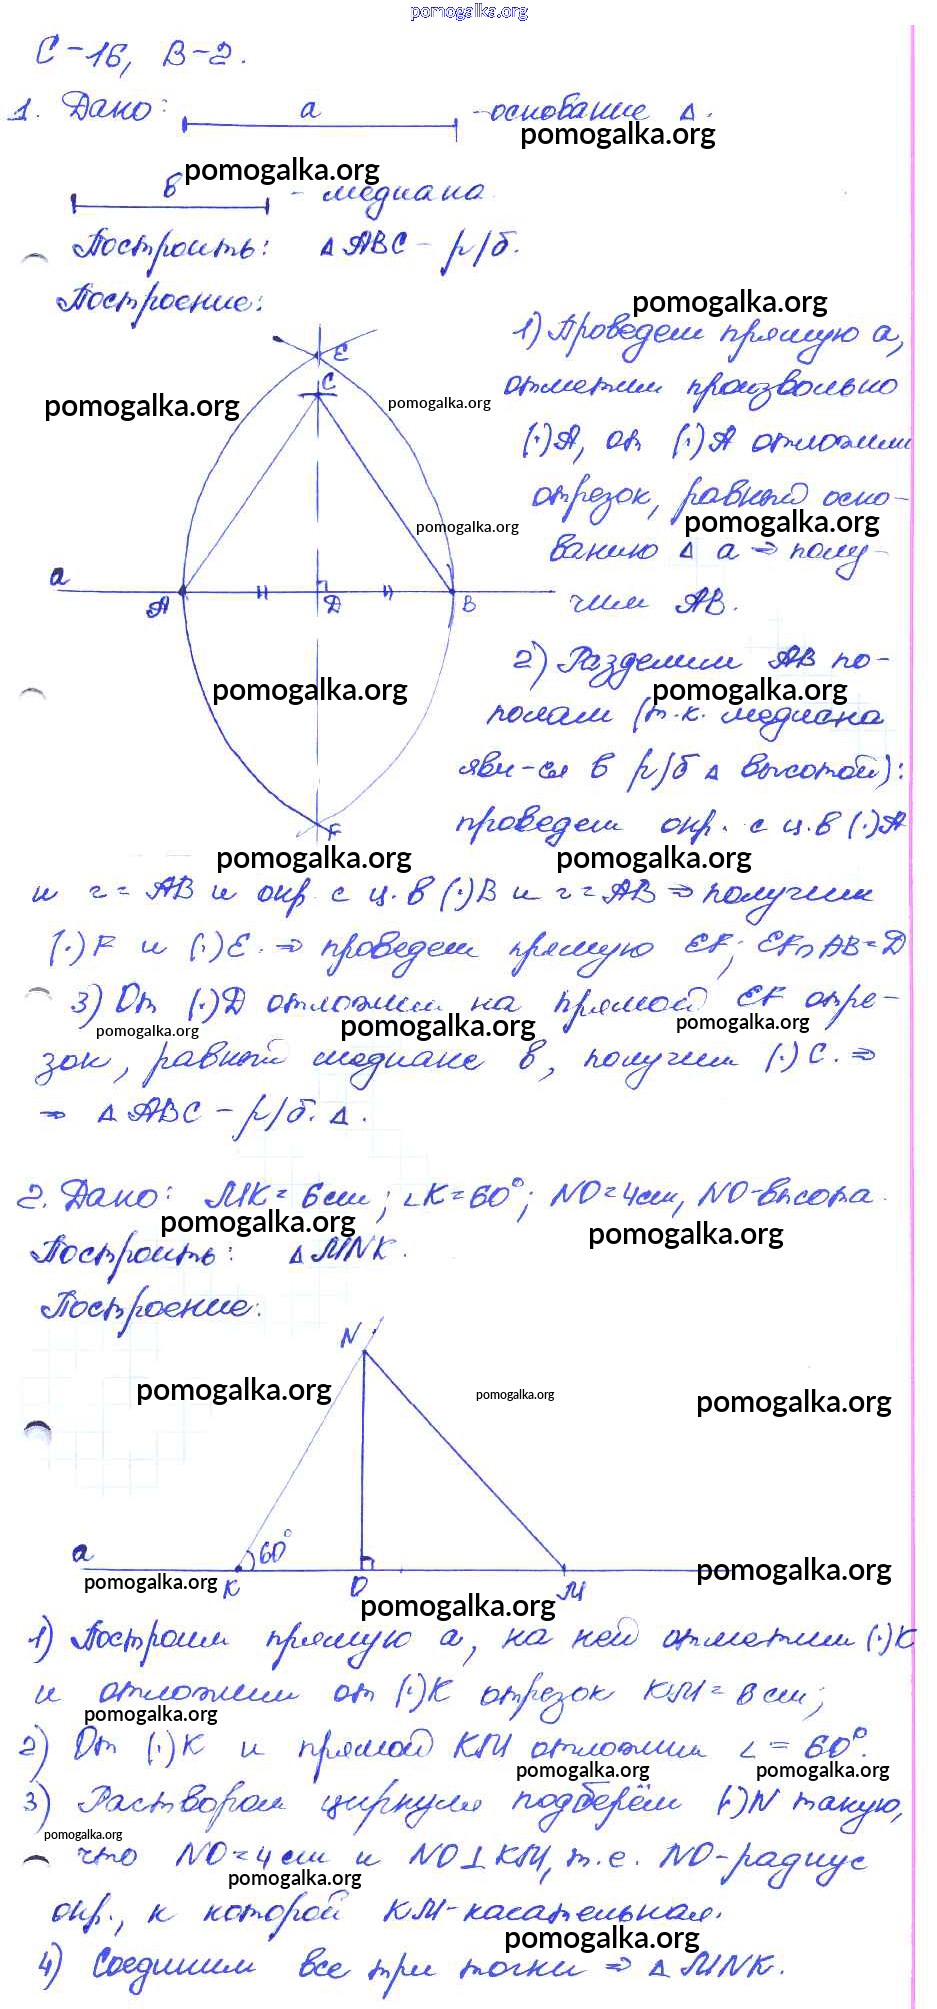 pomogalka.org
С-16, В-2.
1. Дано: a - основание Δ.
pomogalka.org
pomogalka.org
в - медиана
Построить: Δ ABC - р/б.
Построение:
pomogalka.org
1) Проведем прямую a,
E
C
отметим произвольно
pomogalka.org pomogalka.org
(·)A, от (·)A отложим
отрезок, равный осно-
pomogalka.org pomogalka.org
ванию Δ a ⇒ полу-
a
A D B
чим AB.
2) Разделим AB по-
pomogalka.org pomogalka.org
полам (т.к. медиана
явл-ся в р/б Δ высотой):
проведем окр. с ц. в (·)A
F
pomogalka.org pomogalka.org
и r = AB и окр с ц. в (·)B и r = AB ⇒ получим
(·)F и (·)E. ⇒ проведем прямую EF; EF∩AB=D
3) От (·)D отложим на прямой EF отре-
pomogalka.org pomogalka.org pomogalka.org
зок, равный медиане в, получим (·)C. ⇒
⇒ Δ ABC - р/б. Δ.
2. Дано: MK = 6см; ∠K = 60°; NO = 4см, NO-высота.
pomogalka.org pomogalka.org
Построить: Δ MNK.
Построение:
N
pomogalka.org pomogalka.org pomogalka.org
a 60°
pomogalka.org pomogalka.org
K O M
pomogalka.org
1) Построим прямую a, на ней отметим (·)K
и отложим от (·)K отрезок KM = 6см;
pomogalka.org
2) От (·)K и прямой KM отложим ∠ = 60°.
pomogalka.org pomogalka.org
3) Раствором циркуля подберём (·)N такую,
pomogalka.org
что NO = 4см и NO⊥KM, т.е. NO-радиус
pomogalka.org
окр., к которой KM-касательная.
pomogalka.org
4) Соединим все три точки ⇒ Δ MNK.